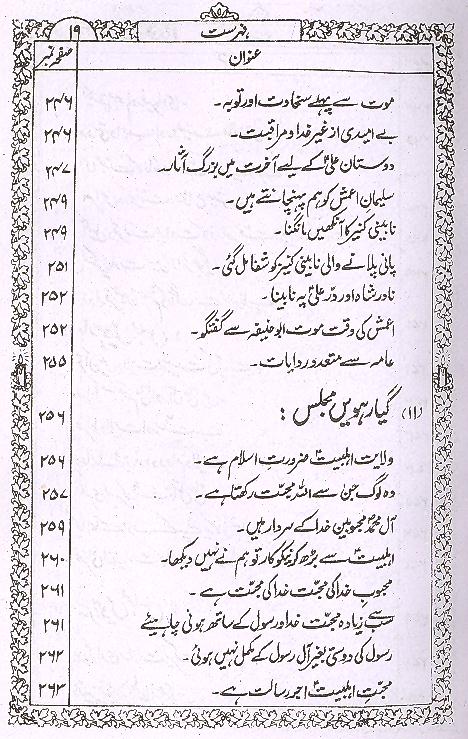 فہرست ۱۹
عنوان صفحہ نمبر
موت سے پہلے سخاوت اور توبہ۔ ۲۴۶
بے امیدی از غیر خدا و مراقبت۔ ۲۴۶
دوستان علیؑ کے لیے آخرت میں بزرگ آثار۔ ۲۴۷
سلیمان اعمش کو ہم پہنچانتے ہیں۔ ۲۴۹
نابینی کنیز کا آنکھیں مانگنا۔ ۲۴۹
پانی پلانے والی نابینی کنیز کو شفا مل گئی۔ ۲۵۱
نادر شاہ اور در علیؑ پہ نابینا۔ ۲۵۲
اعمش کی وقت موت ابو حنیفہ سے گفتگو۔ ۲۵۲
عامہ سے متعدد روایات۔ ۲۵۵
(۱۱) گیارہویں مجلس : ۲۵۶
ولایت اہلبیتؑ ضرورت اسلام ہے۔ ۲۵۶
وہ لوگ جن سے اللہ محبّت رکھتا ہے۔ ۲۵۷
آل محمدؐ محبوبین خدا کے سردار ہیں۔ ۲۵۹
اہلبیتؑ سے بڑھ کو نیکو کار تو ہم نے نہیں دیکھا۔ ۲۶۰
محبوب خدا کی محبّت خدا کی محبّت ہے۔ ۲۶۱
سب سے زیادہ محبّت خدا و رسول کے ساتھ ہونی چاہیئے ۲۶۱
رسول کی دوستی بغیر آل رسول کے مکمل نہیں ہوئی۔ ۲۶۲
محبّت اہلبیتؑ اجر رسالت ہے۔ ۲۶۲